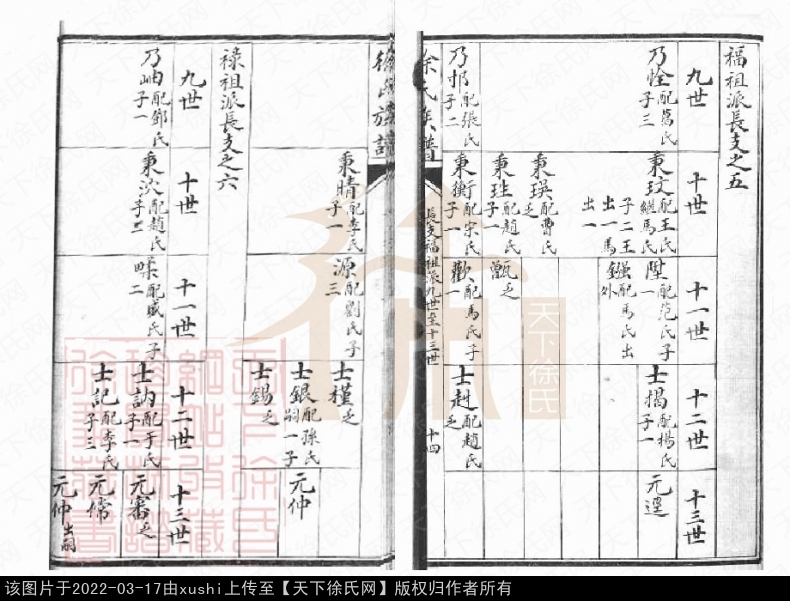 福祖派長支之五
九世
十世
十一世
十二世
十三世
乃恮配萬氏
子三
秉玟配王氏
繼馬氏
子二王
出一馬
出一
陞配范氏子
一
鏹配馬氏出
外
士揭配楊氏
子一
元遲
秉瑛配曹氏
乏
秉珄配趙氏
子一
甑乏
乃邘配張氏
子二
秉衡配宋氏
子一
歡配馬氏子
一
士赳配趙氏
乏
徐氏族譜
長支福祖派九世至十三世
十四
徐氏族譜
秉晴配李氏
子一
源配劉氏子
三
士槿乏
士銀配孫氏
嗣一子
元仲
士錫乏
祿祖派長支之六
九世
十世
十一世
十二世
十三世
乃岫配鄧氏
子一
秉次配趙氏
子
配咸氏子
二
士訥配于氏
子一
元審乏
士記配李氏
子三
元儒
元仲出嗣
徐
天下徐氏
该图片于2022-03-17由xushi上传至【天下徐氏网】版权归作者所有